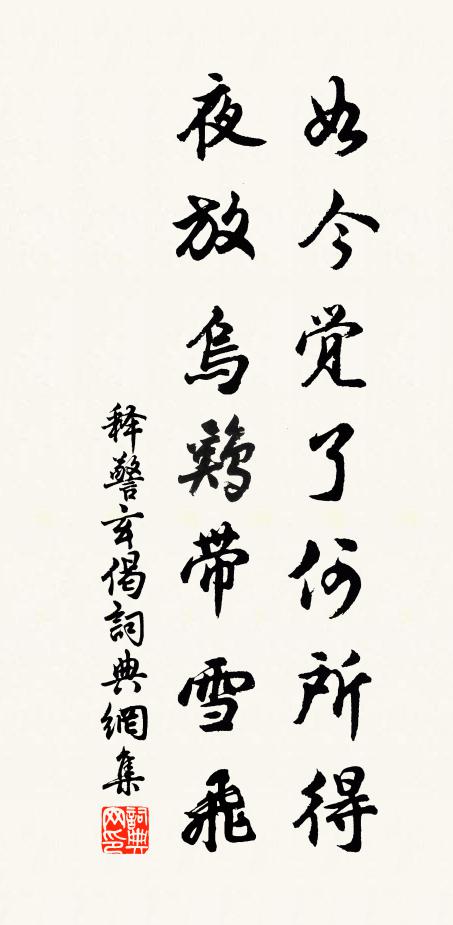 如今觉了何所得
夜放烏鷄带雪飛
释警玄偈詞典網集
詞典网印